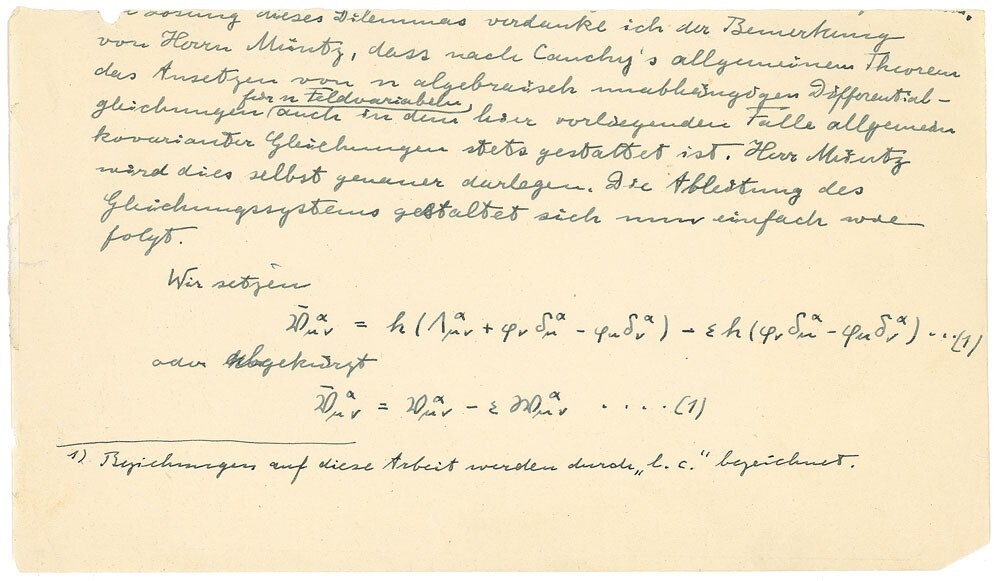 Lösung dieses Dilemmas verdanke ich der Bemerkung
von Herrn Müntz, dass nach Cauchy's allgemeinem Theorem
das Ansetzen von n algebraisch unabhängigen Differential-
für n Feldvariabeln
gleichungen auch in dem hier vorliegenden Falle allgemein
kovarianter Gleichungen stets gestattet ist. Herr Müntz
wird dies selbst genauer darlegen. Die Ableitung des
Gleichungssystems gestaltet sich nun einfach wie
folgt.
Wir setzen
𝔙̄_{μν}^α = h(Λ_{μν}^α + φ_ν δ_μ^α - φ_μ δ_ν^α) - ε h(φ_ν δ_μ^α - φ_μ δ_ν^α) ...(1)
oder abgekürzt
𝔙̄_{μν}^α = 𝔙_{μν}^α - ε 𝔚_{μν}^α ....(1)
1) Beziehungen auf diese Arbeit werden durch „l. c." bezeichnet.